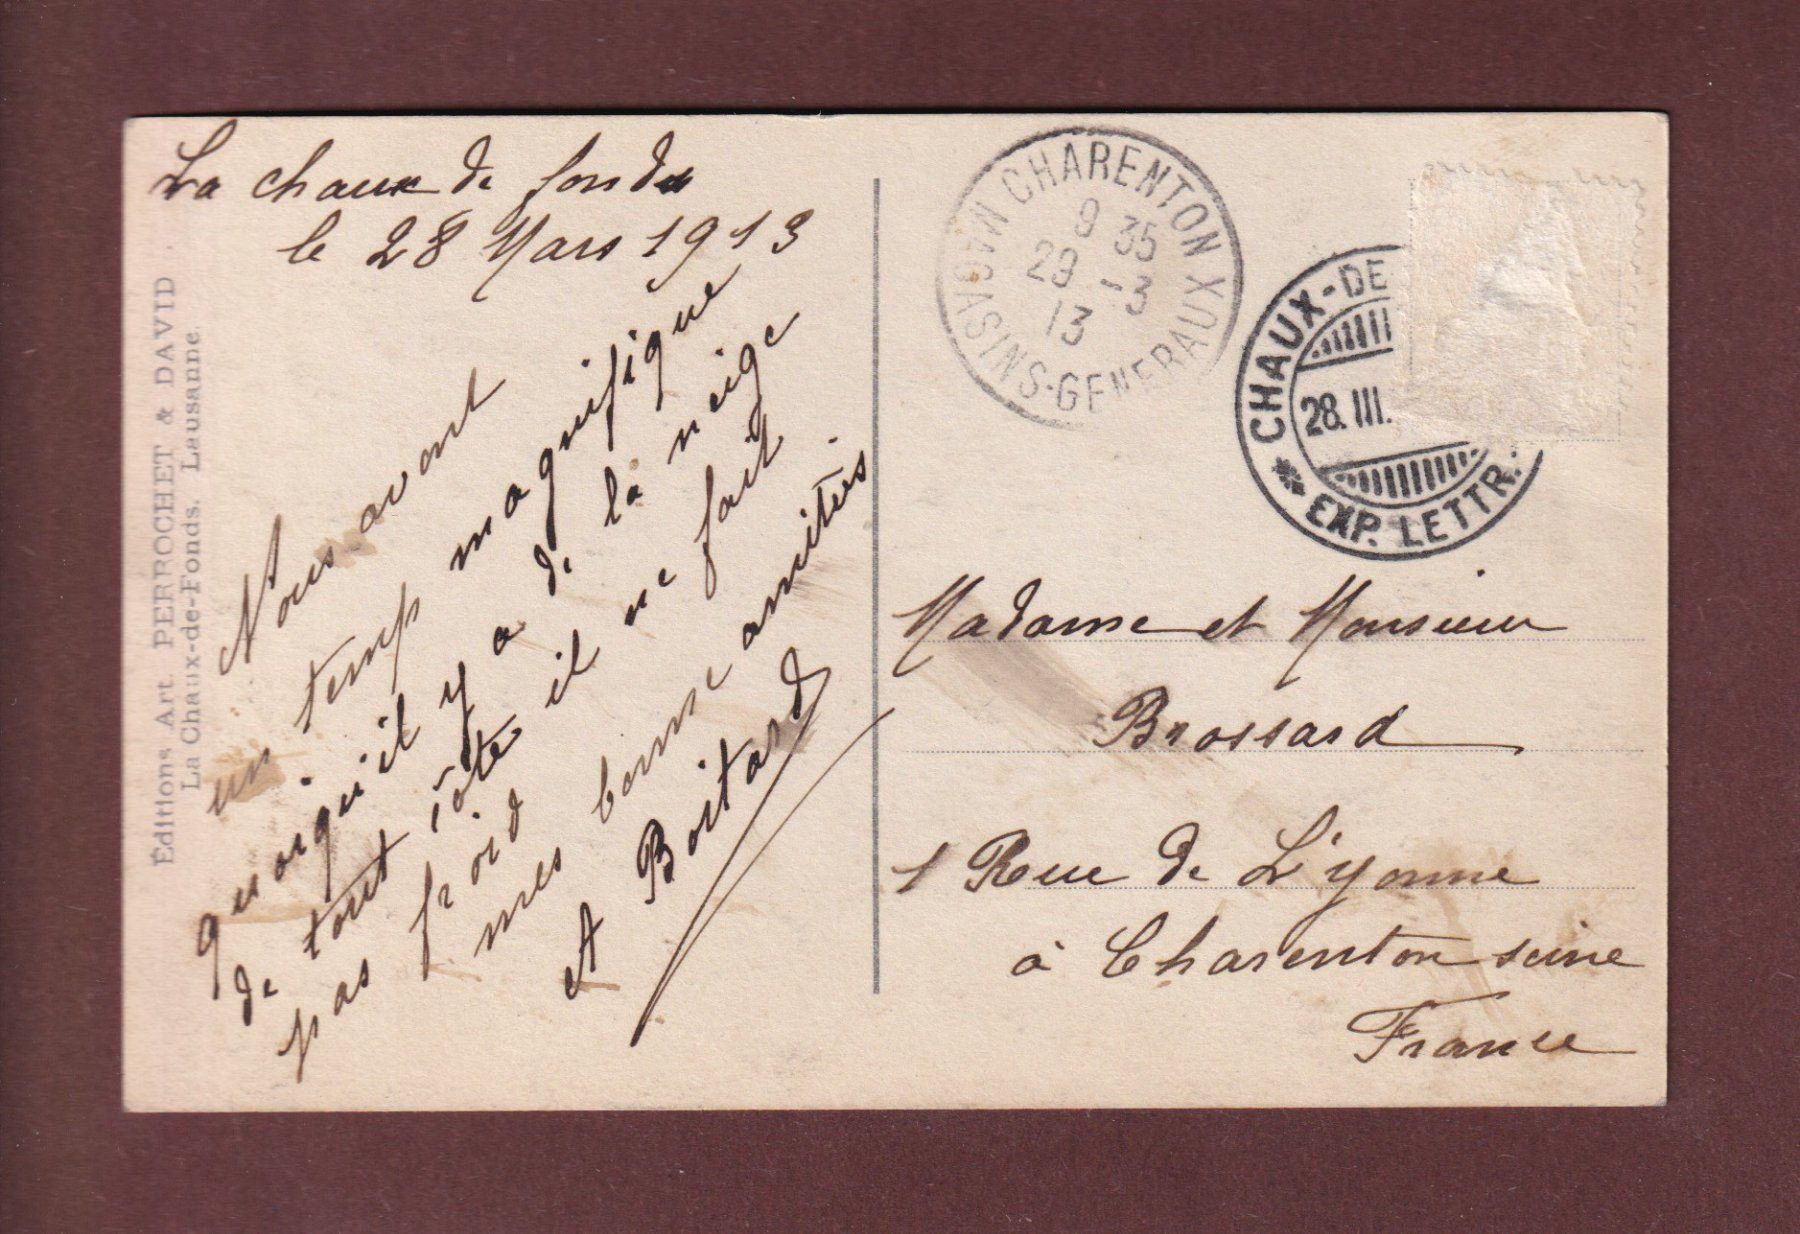 La chaux de fonds
le 28 Mars 1913
Nous avont
un temps magnifique
quoiqu'il y a de la neige
de tout côté il ne fait
pas froid
mes bonne amitiés
A Boitard
Éditions Art. PERROCHET & DAVID
La Chaux-de-Fonds. Lausanne.
CHARENTON
MAGASINS-GENERAUX
9 35
29 -3
13
CHAUX-DE
28.III.
EXP. LETTR.
Madame et Monsieur
Brossard
1 Rue de L'yonne
à Charenton seine
France